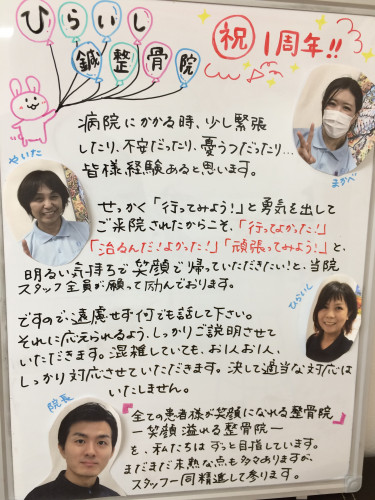 ひらいし
鍼整骨院
祝 1周年!!
病院にかかる時、少し緊張
したり、不安だったり、憂うつだったり...
皆様経験あると思います。
まかべ
やいた
せっかく「行ってみよう!」と勇気を出して
ご来院されたからこそ、「行ってよかった!」
「治るんだ!よかった!」「頑張ってみよう!」と、
明るい気持ちで笑顔で帰っていただきたい!と、当院
スタッフ全員が願って励んでおります。
ひらいし
ですので、遠慮せず何でも話して下さい。
それに応えられるよう、しっかりご説明させて
いただきます。混雑していても、お1人お1人、
しっかり対応させていただきます。決して適当な対応は
いたしません。
院長
『全ての患者様が笑顔になれる整骨院
ー笑顔溢れる整骨院ー』
を、私たちはずっと目指しています。
まだまだ未熟な点も多々ありますが、
スタッフ一同精進して参ります。